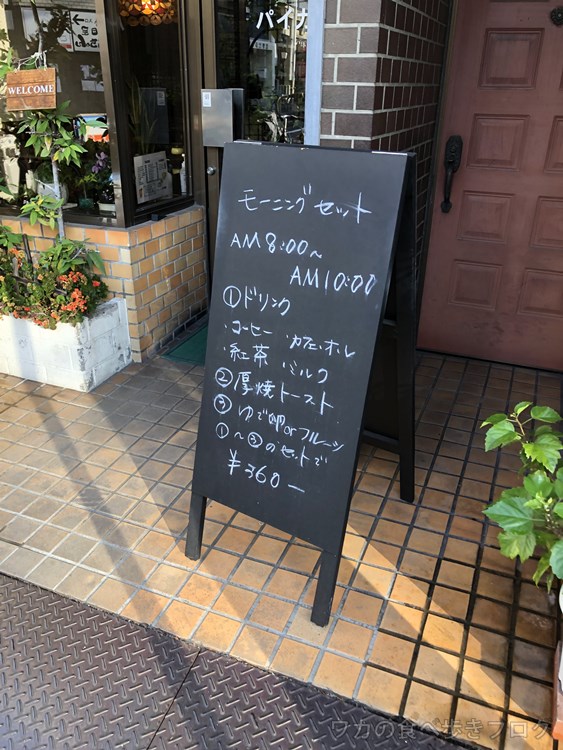 パイオ
WELCOME
モーニングセット
AM8:00～
AM10:00
①ドリンク
・コーヒー ・カフェ・オレ
・紅茶 ・ミルク
②厚焼トースト
③ゆで卵orフルーツ
①～③のセットで
¥360-
ワカの食べ歩きブログ